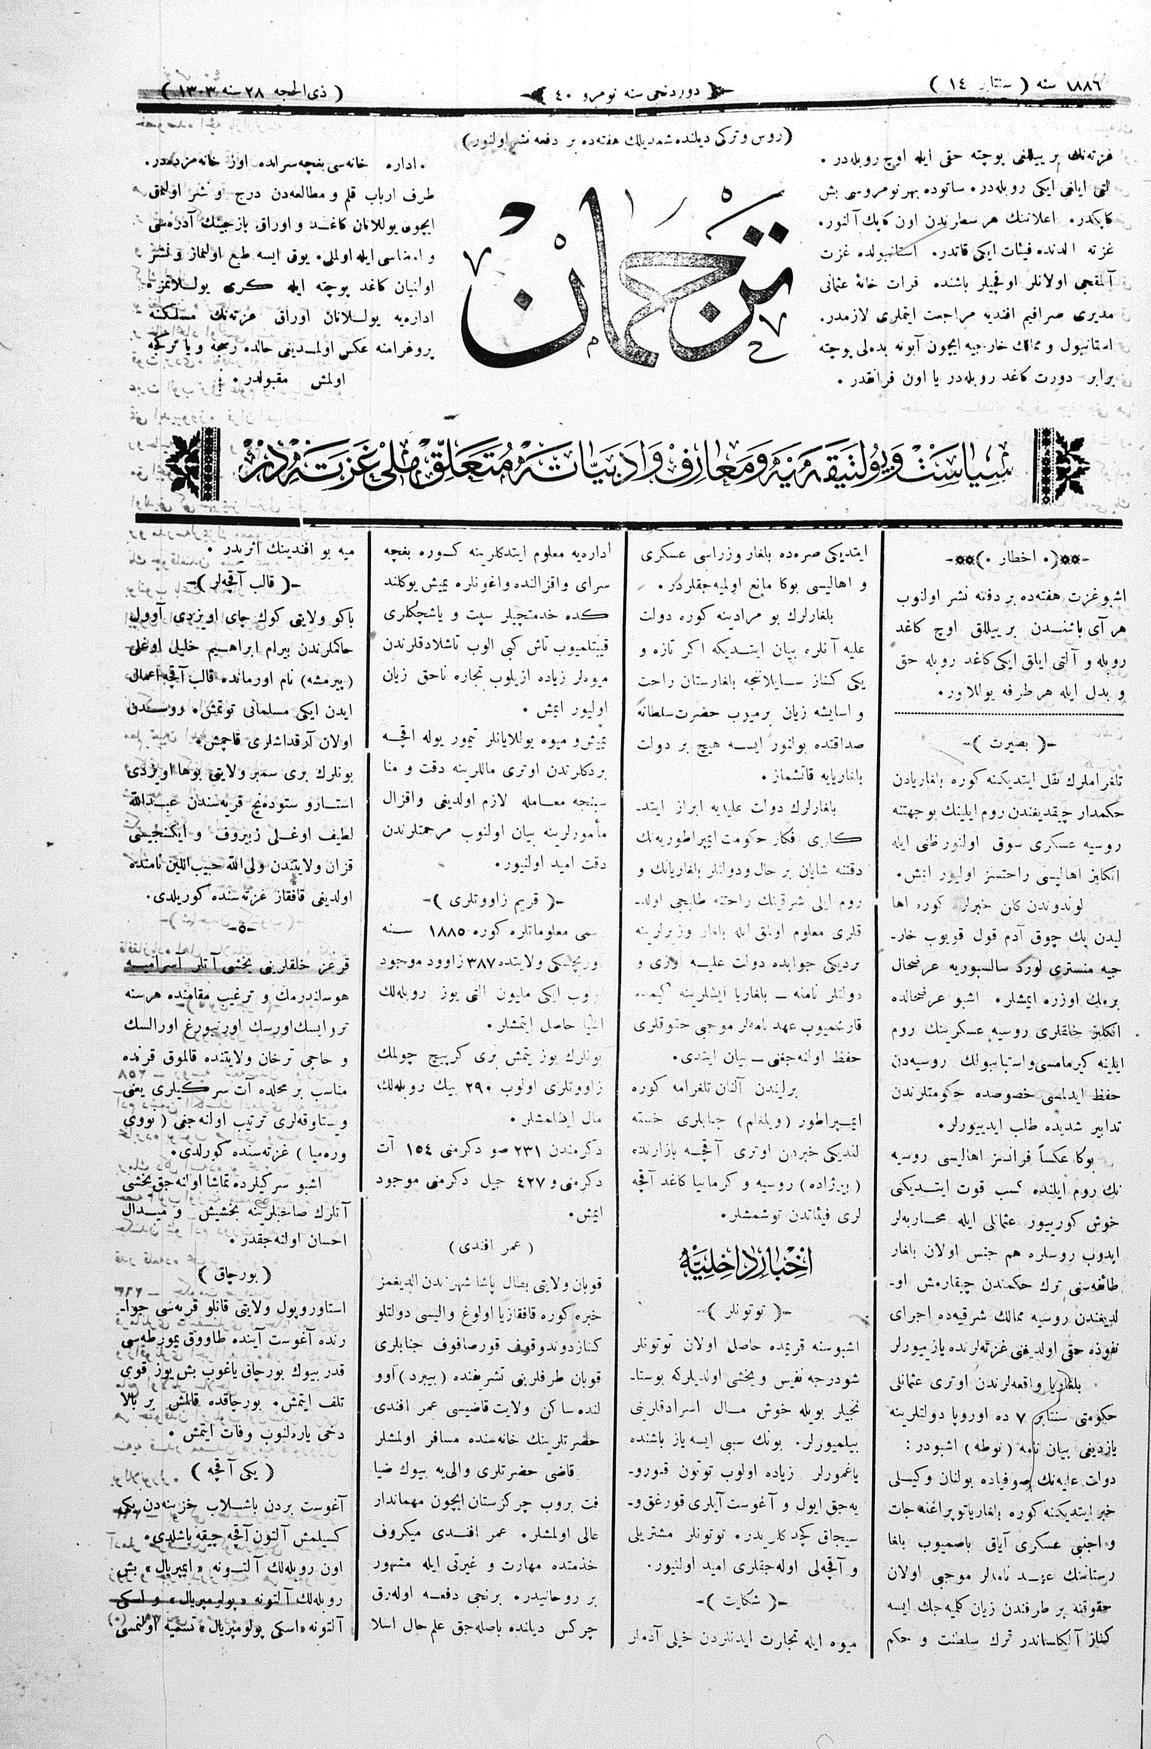 ١٨٨٦ سنه ( سنتابر ١٤ )
دوردنجی سنه نومرو ٤٠
( ذی الحجه ٢٨ سنه ١٣٠٣ )
(روس و ترکی دیلنده شمدیلك هفته‌ده بر دفعه نشر اولنور)
غزته‌نك بر ییللغی پوچته حقی ایله اوچ روبله‌در .
التی ایلغی ایکی روبله‌در . ساتوده بهر نومروسی بش
کاپکدر . اعلاننك هر سطرندن اون کاپك آلنور .
غزته الدنده فیئات ایکی قاتدر . استانبولده غزت
آلمقجی اولانلر اوقجیلر باشنده قرات خانهٔ عثمانی
مدیری صرافیم افندیه مراجعت ایتملری لازمدر .
استانبول و ممالك خارجیه ایچون آبونه بدلی پوچته
برابر دورت کاغد روبله‌در یا اون فرانقدر .
ترجمان
. اداره خانه‌سی بغچه سرایده اوز خانه‌مزده‌در .
طرف ارباب قلم و مطالعه‌دن درج و نشر اولنمق
ایچون یوللانان کاغد و اوراق یازجینك آدره‌سی
و امضاسی ایله اولملی . یوق ایسه طبع اولنماز و نشر
اولنمیان کاغد پوچته ایله کری یوللانمزه
اداره‌یه یوللانان اوراق غزته‌نك مسلکنه
پروغرامنه عکس اولمدیغی حالده رسجه و یا ترکجه
اولمش مقبولدر .
سیاست و پولتیقه‌یه و معارف و ادبیاته متعلق ملی غزته‌در
-**( . اخطار . )**-
اشبو غزت هفته‌ده بر دفعه نشر اولنوب
هر آی باشندن بر ییللق اوچ کاغد
روبله و آلتی ایلق ایکی کاغد روبله حق
و بدل ایله هر طرفه یوللاور .
-( بصیرت )-
تلغراملرك نقل ایتدیکنه کوره بلغاریادن
حکمدار چیقدیغندن روم ایلینك بوجهتنه
روسیه عسکری سوق اولنور ظنی ایله
انکلیز اهالیسی راحتسز اولیور ایمش .
لوندوندن کلن خبرلره کوره اها
لیدن پك چوق آدم قول قویوب خار-
جیه منستری لورد سالسبوریه عرضحال
برمك اوزره ایمشلر . اشبو عرضحالده
انکلیز خلقلری روسیه عسکرینك روم
ایلینه کیرمامسی و استانبولك روسیه‌دن
حفظ ایدلمسی خصوصده حکومتلرندن
تدابیر شدیده طلب ایدییورلر .
بوکا عکساً فرانسز اهالیسی روسیه
نك روم ایلنده کسب قوت ایتدیکنی
خوش کورییور عثمانلی ایله محاربه‌لر
ایدوب روسلره هم جنس اولان بلغار
طائفه‌سنی ترك حکمندن چیقارمش او-
لدیغندن روسیه ممالك شرقیه‌ده اجرای
نفوذه حقی اولدیغنی غزته‌لرنده یازییورلر
بلغاریا واقعه‌لرندن اوتری عثمانلی
حکومتی سنتابر ٧ ده اوروپا دولتلرینه
یازدیغی بیان نامه (نوطه) اشبودر :
دولت علیه‌نك صوفیاده بولنان وکیلی
خبر ایتدیکنه کوره بلغاریا توپراغنه جات
و اجنبی عسکری آیاق باصمیوب بلغا
رستاننك عهد نامه‌لر موجبی اولان
حقوقنه بر طرفندن زیان کلمیه‌جك ایسه
کنیاز آلکساندر ترك سلطنت و حکم
ایتدیکی صره‌ده بلغار وزراسی عسکری
و اهالیسی بوکا مانع اولمیه‌جقلردر .
بلغارلرك بو مرادینه کوره دولت
علیه آنلره بیان ایتدیکه اکر تازه و
یکی کنیاز سایلانجه بلغارستان راحت
و اسایشه زیان برمیوب حضرت سلطانه
صداقتده بولنور ایسه هیچ بر دولت
بلغاریایه قاتشماز .
بلغارلرك دولت علیه‌یه ابراز ایتد-
کلری افکار حکومت ایمپراطوریه‌نك
دقتنه شایان بر حال و دولتلر بلغاریانك و
روم ایلی شرقینك راحته طالبجی اولد-
قلری معلوم اولمق ایله بلغار وزیرلرینه
بردیکی جوابده دولت علیه اوزی و
دولتلر نامنه — بلغاریا ایشلرینه کیمسه
قارشمیوب عهد نامه‌لر موجبی حقوقلری
حفظ اولنه‌جغنی — بیان ایتدی .
برلیندن آلنان تلغرامه کوره
ایمپراطور (ویلغلم) جنابلری خسته
لندیکی خبردن اوتری آقچه بازارنده
(بیرژاده) روسیه و کرمانیا کاغد آقچه
لری فیئاتدن توشمشلر .
اخبار داخلیه
-( توتونلر )-
اشبو سنه قریمده حاصل اولان توتونلر
شو درجه نفیس و یخشی اولدیلرکه بوستا-
نجیلر بویله خوش مال اسرادقلرینی
بیلمیورلر . بونك سببی ایسه یاز باشنده
یاغمورلر زیاده اولوب توتون قورو-
یه‌جق ایول و آغوست آیلری قورغق و-
سیجاق کچدکلریدر . توتونلر مشتریلی
و آقچه‌لی اوله‌جقلری امید اولنیور .
-( شکایت )-
میوه ایله تجارت ایدنلردن خیلی آدملر
اداره‌یه معلوم ایتدکلرینه کوره بغچه
سرای واقزالنده واغونلره یمیش یوکلند
کده خدمتچیلر سپت و یاشچکلری
قیبتلمیوب تاش کبی الوب تاشلادقلرندن
میوه‌لر زیاده ازیلوب تجاره ناحق زیان
اولیور ایمش .
یمیش و میوه یوللایانلر تیمور یوله اقچه
بردکلرندن اوتری ماللرینه دقت و منا
سبنجه معامله لازم اولدیغی واقزال
مأمورلرینه بیان اولنوب مرحمتلرندن
دقت امید اولنیور .
-( قریم زاووتلری )-
رسمی معلوماتلره کوره ١٨٨٥ سنه
ورچسکی ولایتده ٣٨٧ زاوود موجود
اولوب ایکی مایون التی یوز روبله‌لك
اشیا حاصل ایتمشلر .
بونلرك یوز یتمش بری کرپیچ چولمك
زاووتلری اولوب ٢٩٠ بیك روبله‌لك
مال ایشلامشلر .
دکرمندن ٢٣١ صو دکرمنی ١٥٤ آت
دکرمنی و ٤٢٧ جیل دکرمنی موجود
ایمش .
( عمر افندی )
قوبان ولایتی بطال پاشا شهرندن الدیغمز
خبره کوره قافقازیا اولوغ والیسی دولتلو
کنیاز دوندوقوف قورصاقوف جنابلری
قوبان طرفلرینی تشریفنده (بیبرد) آوو
لنده ساکن ولایت قاضیسی عمر افندی
حضرتلرینك خانه‌سنده مسافر اولمشلر
قاضی حضرتلری والی‌یه بیوك ضیا
فت بروب چرکزستان ایچون مهماندار
عالی اولمشلر . عمر افندی میکروف
خدمتده مهارت و غیرتی ایله مشهور
بر روحانیدر . برنجی دفعه اوله‌رق
چرکس دیلنده باصله‌جق علم حال اسلا
میه بو افندینك اثریدر .
-( قالب آقچه‌لر )-
باکو ولایتی کوك چای اویزدی آوول
حاکملرندن بیرام ابراهیم خلیل اوغلی
(بیرمشه) نام اورمانده قالب آقچه اعمال
ایدن ایکی مسلمانی توتمش . روسدن
اولان آرقداشلری قاچمش .
بونلرك بری سمبر ولایتی بوها اویزدی
استارو ستوده‌نچ قریه‌سندن عبدالله
لطیف اوغلی زبیروف و ایکنجیسی
قزان ولایتندن ولی الله حبیب اللین نامنده
اولدیغی قافقاز غزته‌سنده کوریلدی .
-٥-
قرغز خلقلرینی یخشی آتلر آسرامیه
هوسلندرمك و ترغیب مقامنده هر سنه
ترویسك اورسك اورنبورغ اورالسك
و حاجی ترخان ولایتنده قالموق قرنده
مناسب بر محلده آت سرکیلری یعنی
ویستاوقه‌لری ترتیب اوله‌جغی (نووی
وره‌میا) غزته‌سنده کورلدی .
اشبو سرکیلرده تماشا اوله‌جق یخشی
آتلرك صاحبلرینه بخشیش و میدال
احسان اوله‌جقدر .
( بورچاق )
استاوروپول ولایتی قانلو قریه‌سی جوا-
رنده آغوست آینده طاووق یمورطه‌سی
قدر بیوك بورچاق یاغوب بش یوز قوی
تلف ایتمش . بورچاقده قالمش بر بالا
دخی یاره‌لنوب وفات ایتمش .
( یکی آقچه )
آغوست بردن باشلاب خزینه‌دن یکی
کسیلمش آلتون آقچه چیقه باشلدی .
اون روبله‌لك آلتونه «ایمپریال» بش
روبله‌لك آلتونه «پولومپریال» و اسکی
آلتونه «اسکی پولومپریال» تسمیه اولنمسی